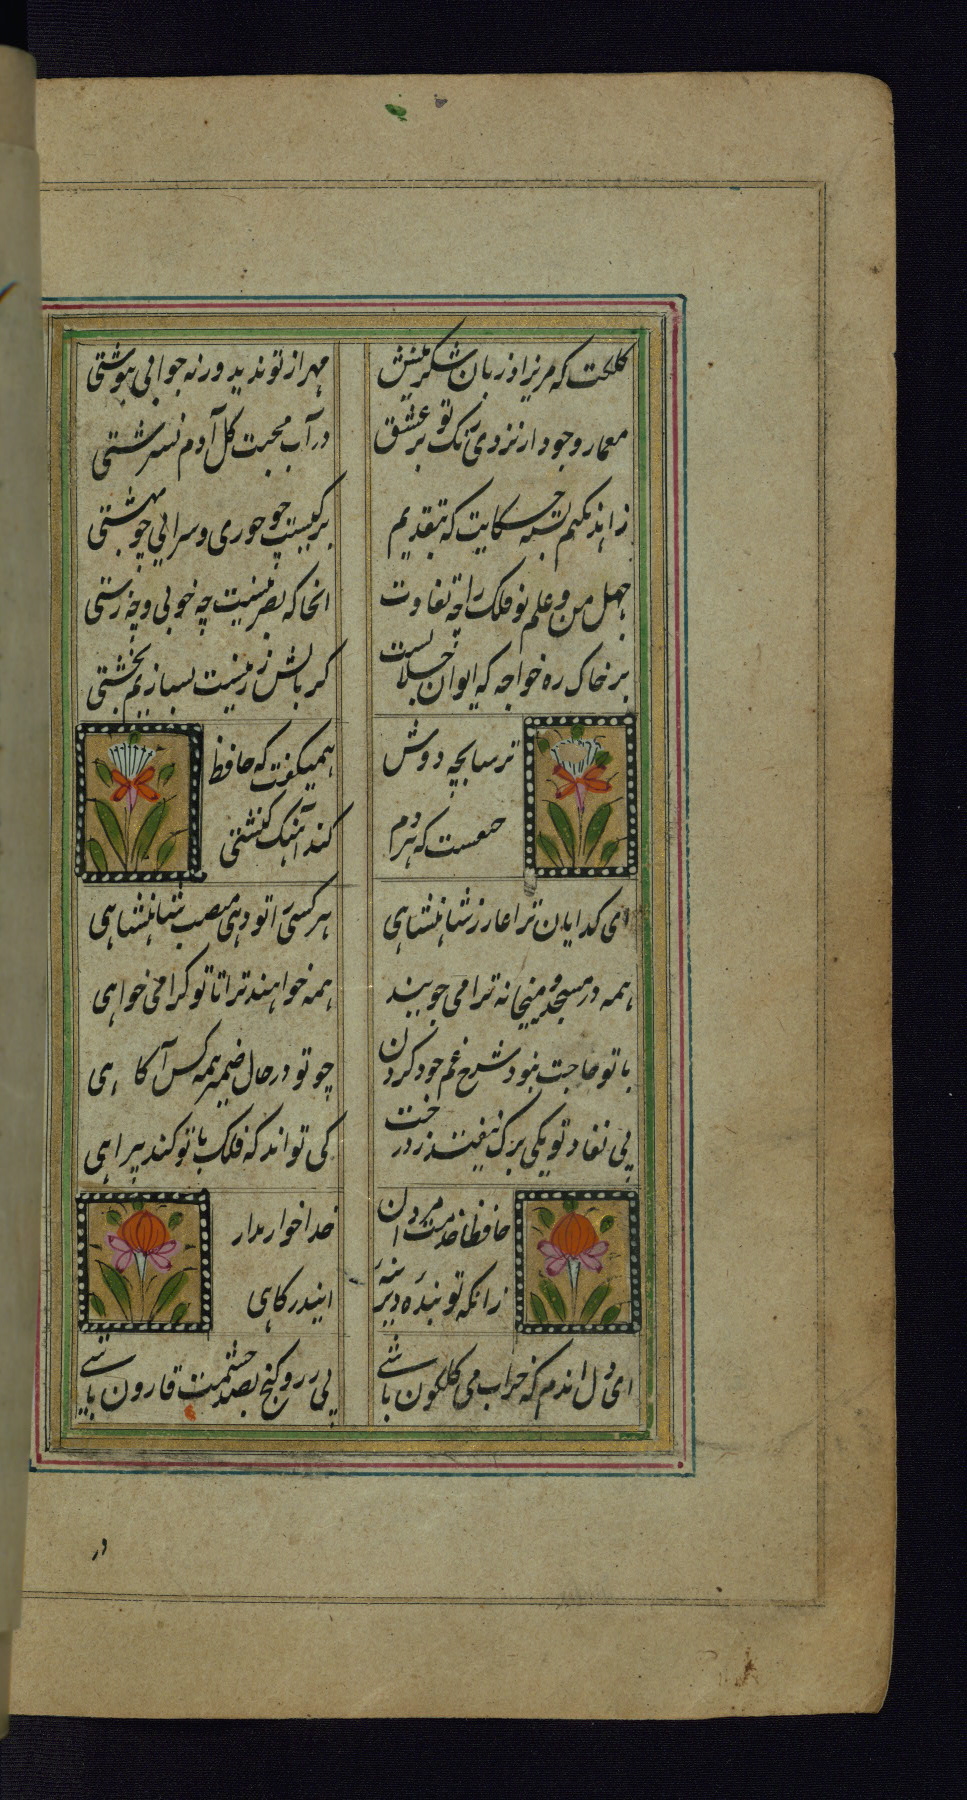 کلکت که مریزاد زبان شکرینش مهر از تو ندید ورنه جوابی بنوشتی
معمار وجود ار نزدی رنک تو بر عشق در آب محبت کل آدم نسرشتی
زاهد مکنم نسیه حکایت که بنقدیم برکیست چو حوری و سرایی چو بهشتی
جهل من و علم تو فلک را چه تفاوت انجا که بصر نیست چه خوبی و چه زشتی
بر خاک ره خواجه که ایوان جلالست کر بالش زر نیست بسازیم بخشتی
ترسابچه دوش همیکفت که حافظ
که هر دم کند آهنک کنشتی
ای کدایان ترا عار ز شاهنشاهی هر کسی را تو دهی منصب شاهنشاهی
همه در مسجد و میخانه ترا می جویند همه خواهند ترا تا تو کرا می خواهی
با تو حاجت نبود شرح غم خود کردن چو تو در حال ضمیر همه کس آکاهی
بی نفاد تو یکی برک نیفتد ز درخت کی تواند که فلک با تو کند بیراهی
حافظا خدمت مردان خدا خوار مدار
زانکه تو بنده دیرینه ایندرکاهی
ای دل اندم که خراب می کلکون باشی بی زر و کنج بصد حشمت قارون باشی
در